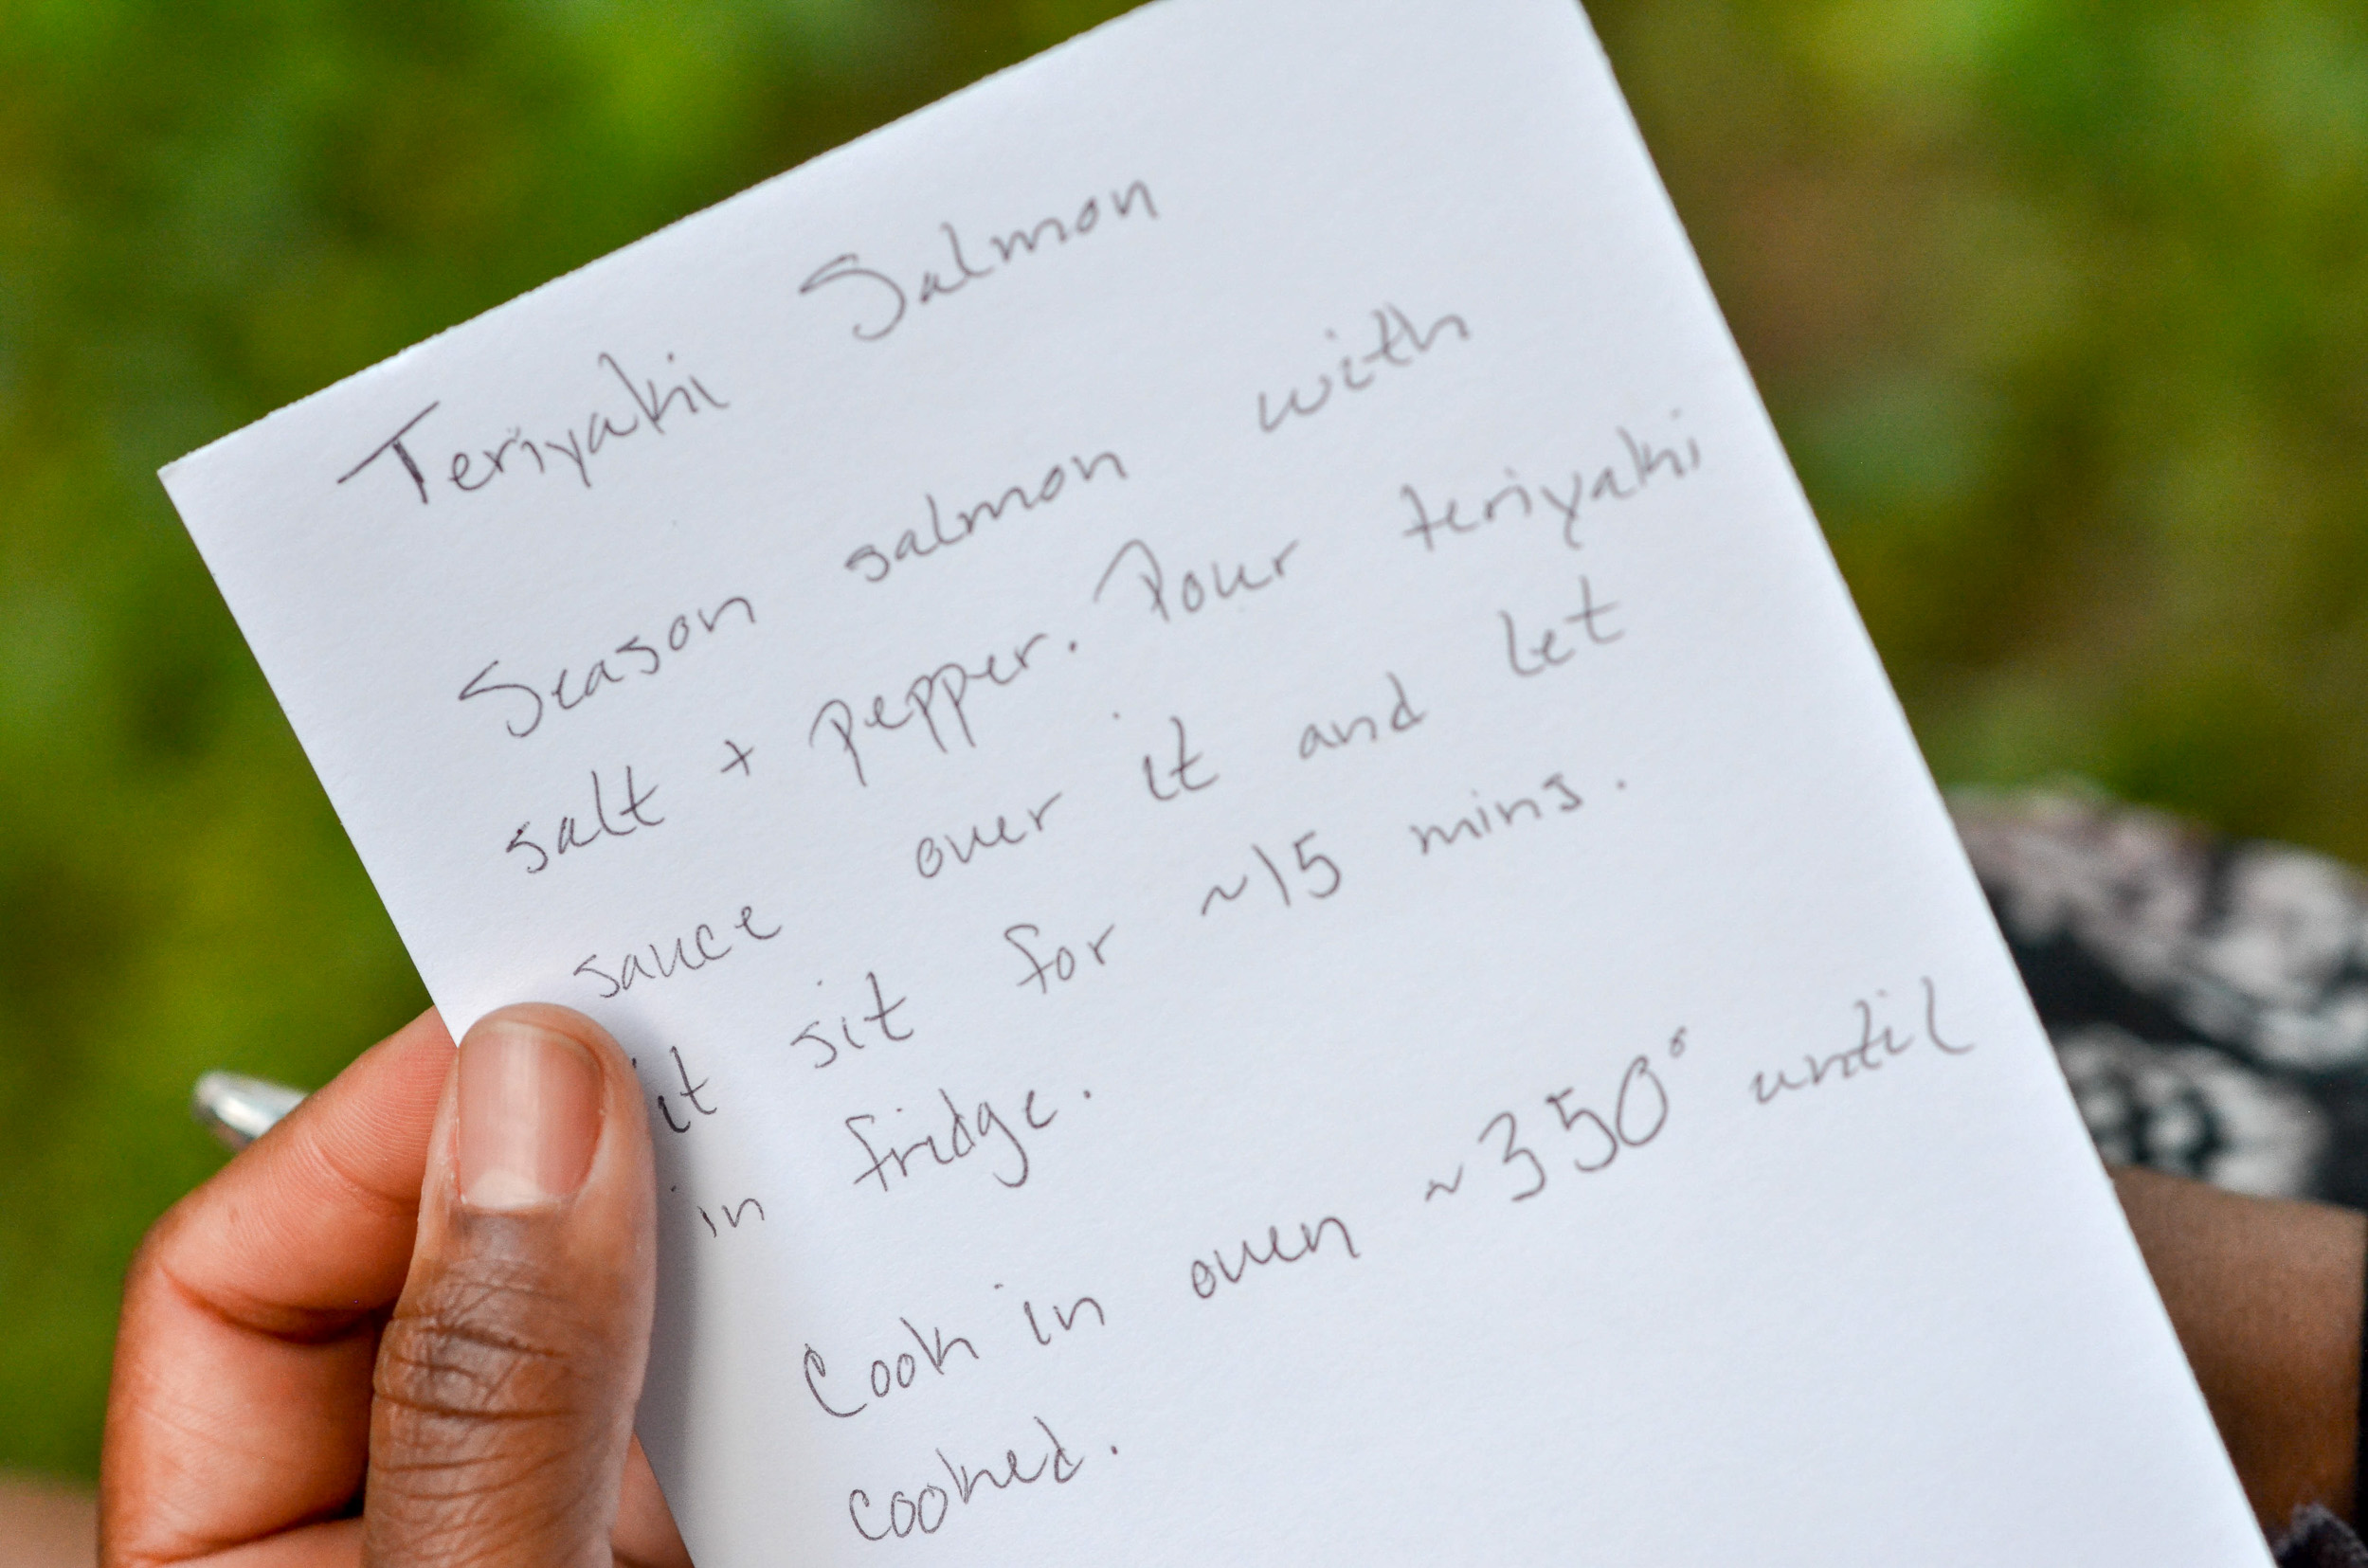 Teriyaki Salmon
Season salmon with
salt + pepper. Pour teriyaki
sauce over it and let
it sit for ~15 mins.
in fridge.
Cook in oven ~350° until
cooked.